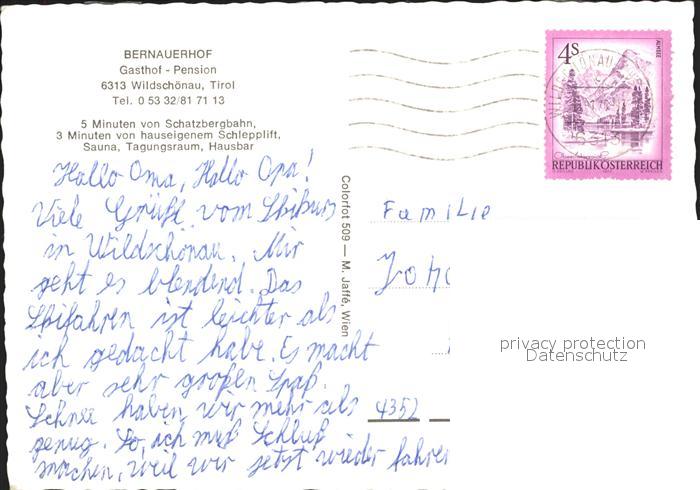 BERNAUERHOF
Gasthof - Pension
6313 Wildschönau, Tirol
Tel. 0 53 32/81 71 13
5 Minuten von Schatzbergbahn,
3 Minuten von hauseigenem Schlepplift,
Sauna, Tagungsraum, Hausbar
Hallo Oma, Hallo Opa!
Viele Grüße vom Skikurs
in Wildschönau. Mir
geht es blendend. Das
Skifahren ist leichter als
ich gedacht habe. Es macht
aber sehr großen Spaß.
Schnee haben wir mehr als
genug. So, ich muß Schluß
machen, weil wir jetzt wieder fahren
Colorfot 509 — M. Jaffé, Wien
4S
ALMSEE
WILDSCHÖNAU
REPUBLIK ÖSTERREICH
Familie
Joh
4352
privacy protection
Datenschutz